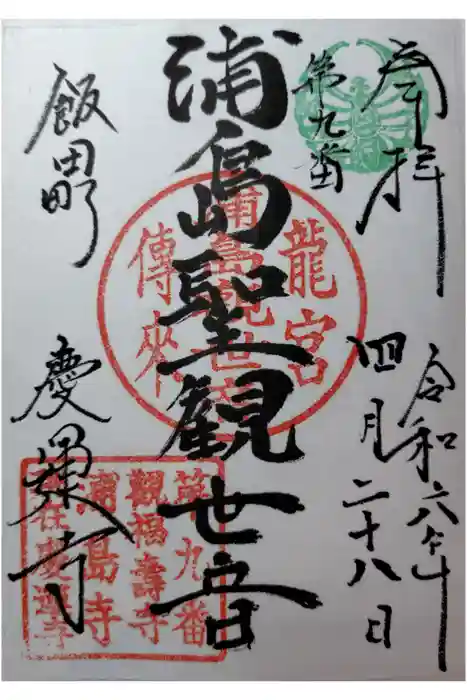 奉拝
令和六年
四月二十八日
第九番
浦島聖観世音
龍宮
浦島観世音
傳來
飯田町
慶運寺
第九番
觀福壽寺
浦島寺
在慶運寺